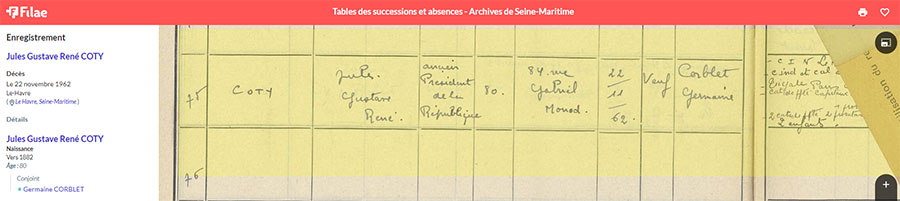 Filae
Tables des successions et absences - Archives de Seine-Maritime
Enregistrement
Jules Gustave René COTY
Décès
Le 22 novembre 1962
Le-Havre
( Le Havre, Seine-Maritime )
Détails
Jules Gustave René COTY
Naissance
Vers 1882
Âge : 80
Conjoint
Germaine CORBLET
75
COTY
Jules
Gustave
René.
ancien
Président
de la
République
80.
84. rue
Gabriel
Monod.
22
11
62.
Veuf
Corblet
Germaine
2 enfants
76
isation du re